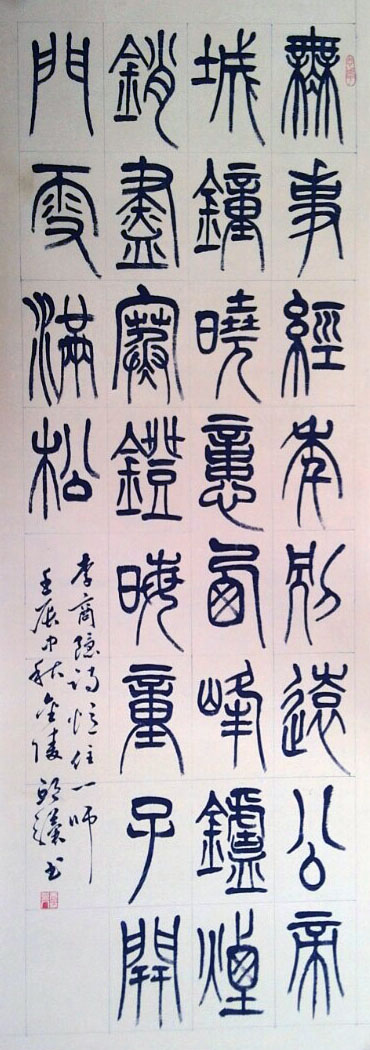 無事經年別遠公帝
城鐘曉憶西峰鑪煙
銷盡寒鐙晦童子開
門雪滿松
李商隐詩憶住一師
壬辰中秋金陵書